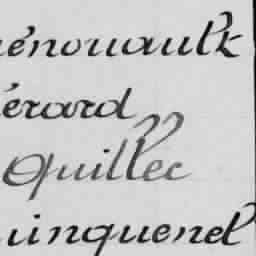 énouault
érard
Quillec
uinquenel